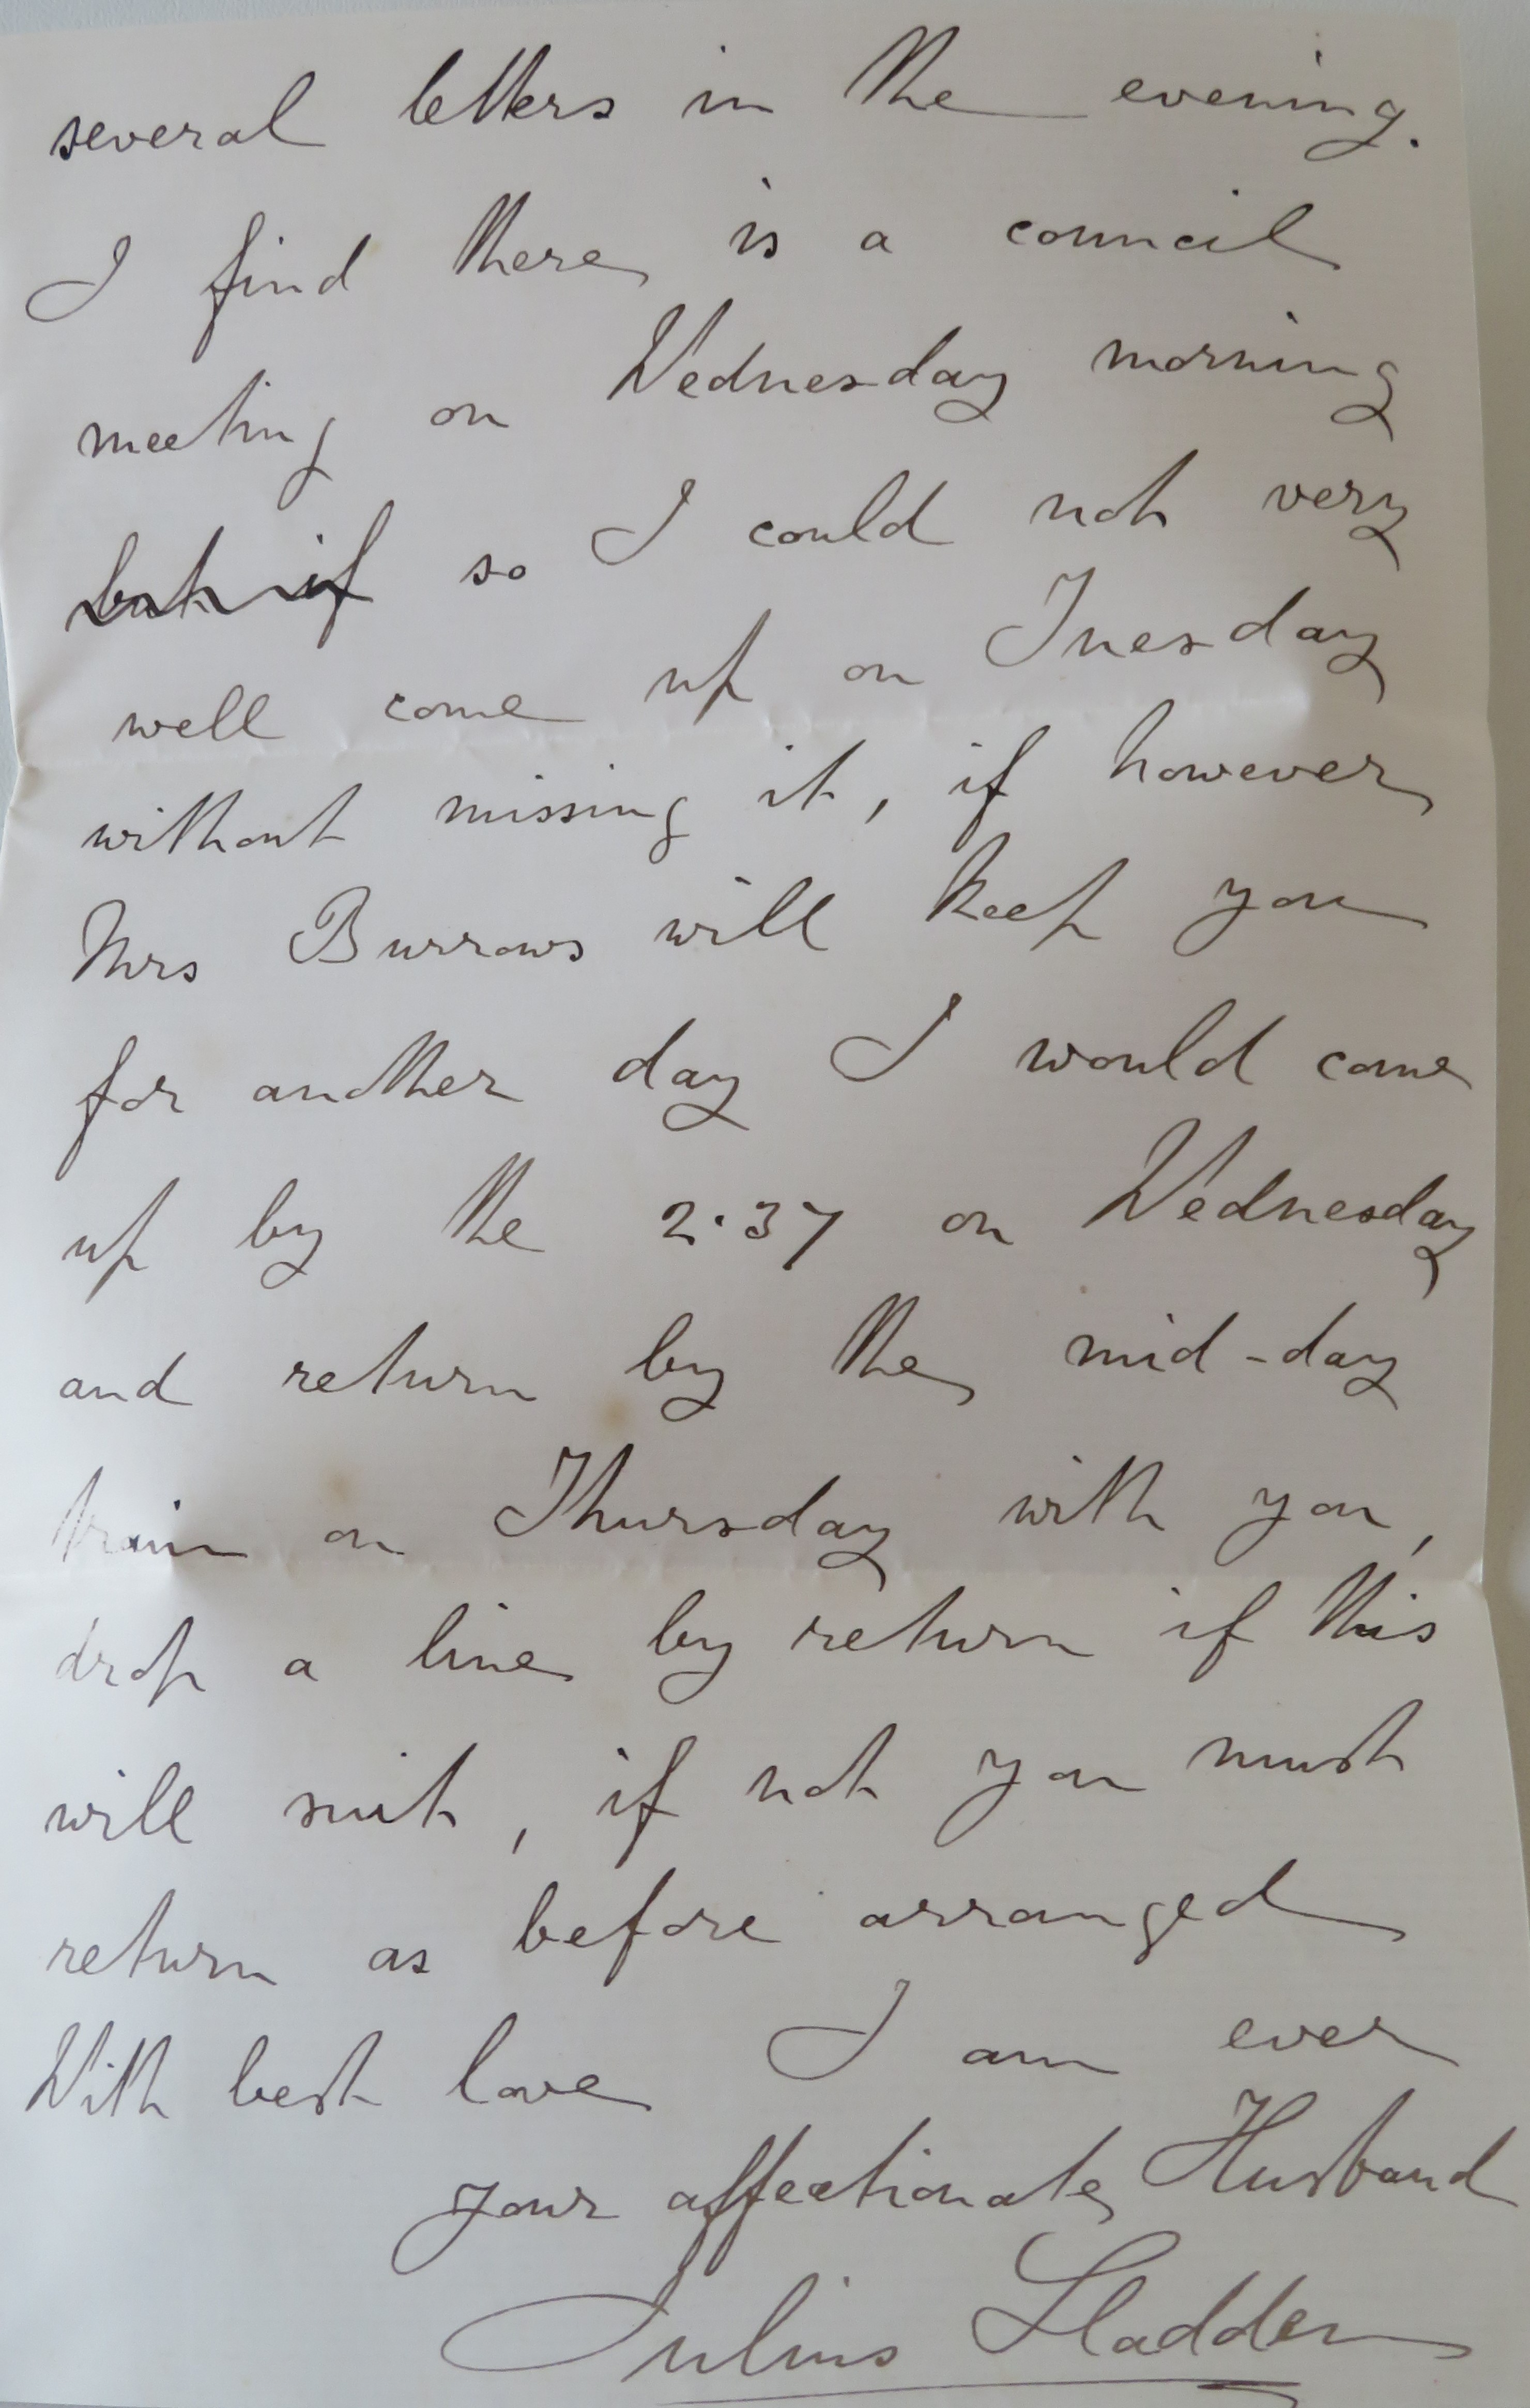 several letters in the evening.
I find there is a council
meeting on Wednesday morning
but if so I could not very
well come up on Tuesday
without missing it, if however
Mrs Burrows will keep you
for another day I would come
up by the 2.37 on Wednesday
and return by the mid-day
train on Thursday with you,
drop a line by return if this
will suit, if not you must
return as before arranged
With best love I am ever
your affectionate Husband
Julius Sladden